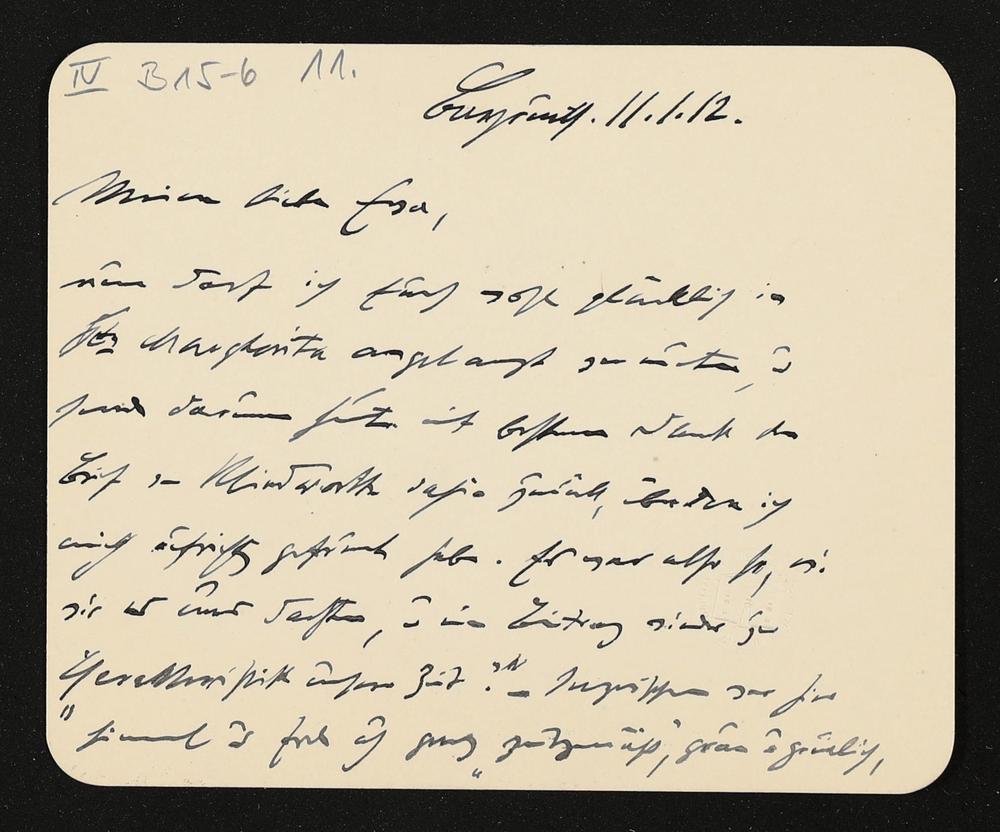 IV B15-6 11.
Bayreuth. 11.1.12.
Meine liebe Eva,
nun darf ich Euch wohl glücklich in
Sta Margherita angelangt vermuten, u
sende darum heute mit bestem Dank den
Brief von Klindworth dafür zurück, über den ich
mich aufrichtig gefreut habe. Es war also so, wie
wir es uns dachten, u ein Beitrag wieder zur
Charakteristik unserer Zeit! – Inzwischen war hier
"Himmel u Erde auch ganz „zeitgemäß“, grau u greulich,